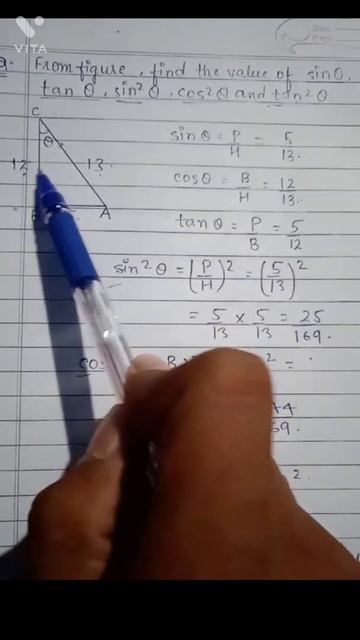 VITA
Q. From figure, find the value of sinθ,
tan θ, sin²θ, cos²θ and tan²θ.
C
θ
12
13.
A
sinθ = P/H = 5/13.
cosθ = B/H = 12/13.
tanθ = P/B = 5/12
sin²θ = (P/H)² = (5/13)²
= 5/13 × 5/13 = 25/169.
cos
² =